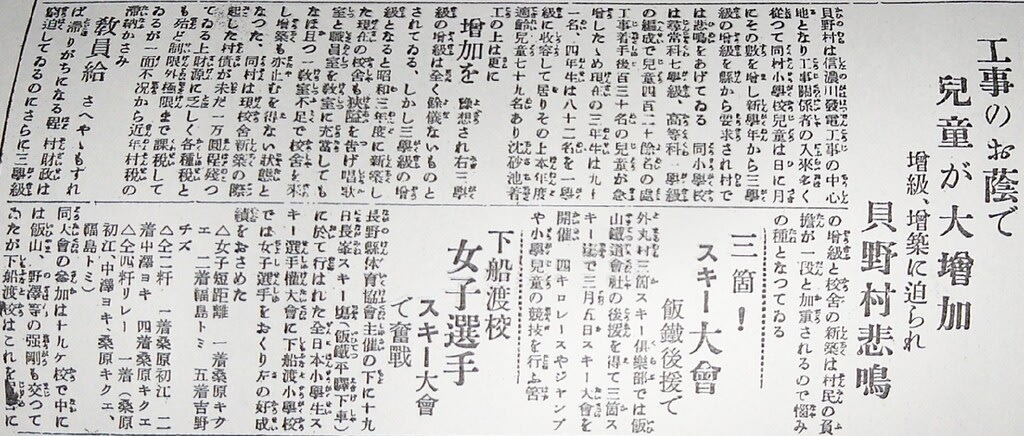 工事のお蔭で
兒童が大增加
增級、增築に迫られ
貝野村悲鳴
貝野村は信濃川發電工事の中心
地となり工事關係者の入來多く
從つて同村小學校兒童は日に月
にその數を增し新學年から三學
級の增級を縣から要求され村で
は悲鳴をあげてゐる 同小學校
は尋常科七學級、高等科一學級
の編成で兒童四百二十餘名の處
工事着手後百三十名の兒童が急
增したゝめ現在の三年生は九十
一名、四年生は八十二名を一學
級に收容して居りその上本年度
適齡兒童七十九名あり沈砂池着
工の上は更に
增加を 豫想され右三學
級の增級は全く餘儀ないものと
されてゐる、しかし三學級の增
級となると昭和三年度に新築し
た現在の校舍も狹隘を吿げ唱歌
室と職員室を敎室に充當しても
なほ且つ一敎室不足で校舍を來
し增築も亦止むを得ない狀態と
なつた、同村は現校舍新築の際
起した村債が未だ一万圓程殘つ
てゐる上財源に乏しく各種稅と
も殆ど制限外の極限まで課稅して
ゐるが一面不況から近年村稅の
滯納かさみ
敎員給 さへやゝもすれ
ば滯りがちになる程 村財政は
窮迫してゐるのにさらに三學級
の增級と校舍の新築は村民の負
擔が一段と加重されるので惱み
の種となつてゐる
三箇!
スキー大會
飯鐵後援で
外丸村三箇スキー俱樂部では飯
山鐵道會社の後援を得て三箇ス
キー場で三月五日スキー大會を
開催 四キロレースやジャンプ
や小學兒童の競技を行ふ筈
下船渡校
女子選手
スキー大會
で奮戰
長野縣体育協會主催の下に十九
日長峯スキー場(飯鐵平驛下車)
に於て行はれた全日本小學生ス
キー選手權大會に下船渡小學校
では女子選手をおくり左の好成
績をおさめた
△女子短距離 一着桑原キク
エ 二着福島トミ 五着吉野
チズ
△仝二粁 一着桑原初江、二
着中澤ヨキ 四着桑原キクエ
△仝四粁リレー 一着(桑原
初江、中澤ヨキ、桑原キクエ、
福島トミ)
同大會の參加は十ルケ校で中に
は飯山、野澤等の强剛も交つて
ゐたが下船渡校はこれを